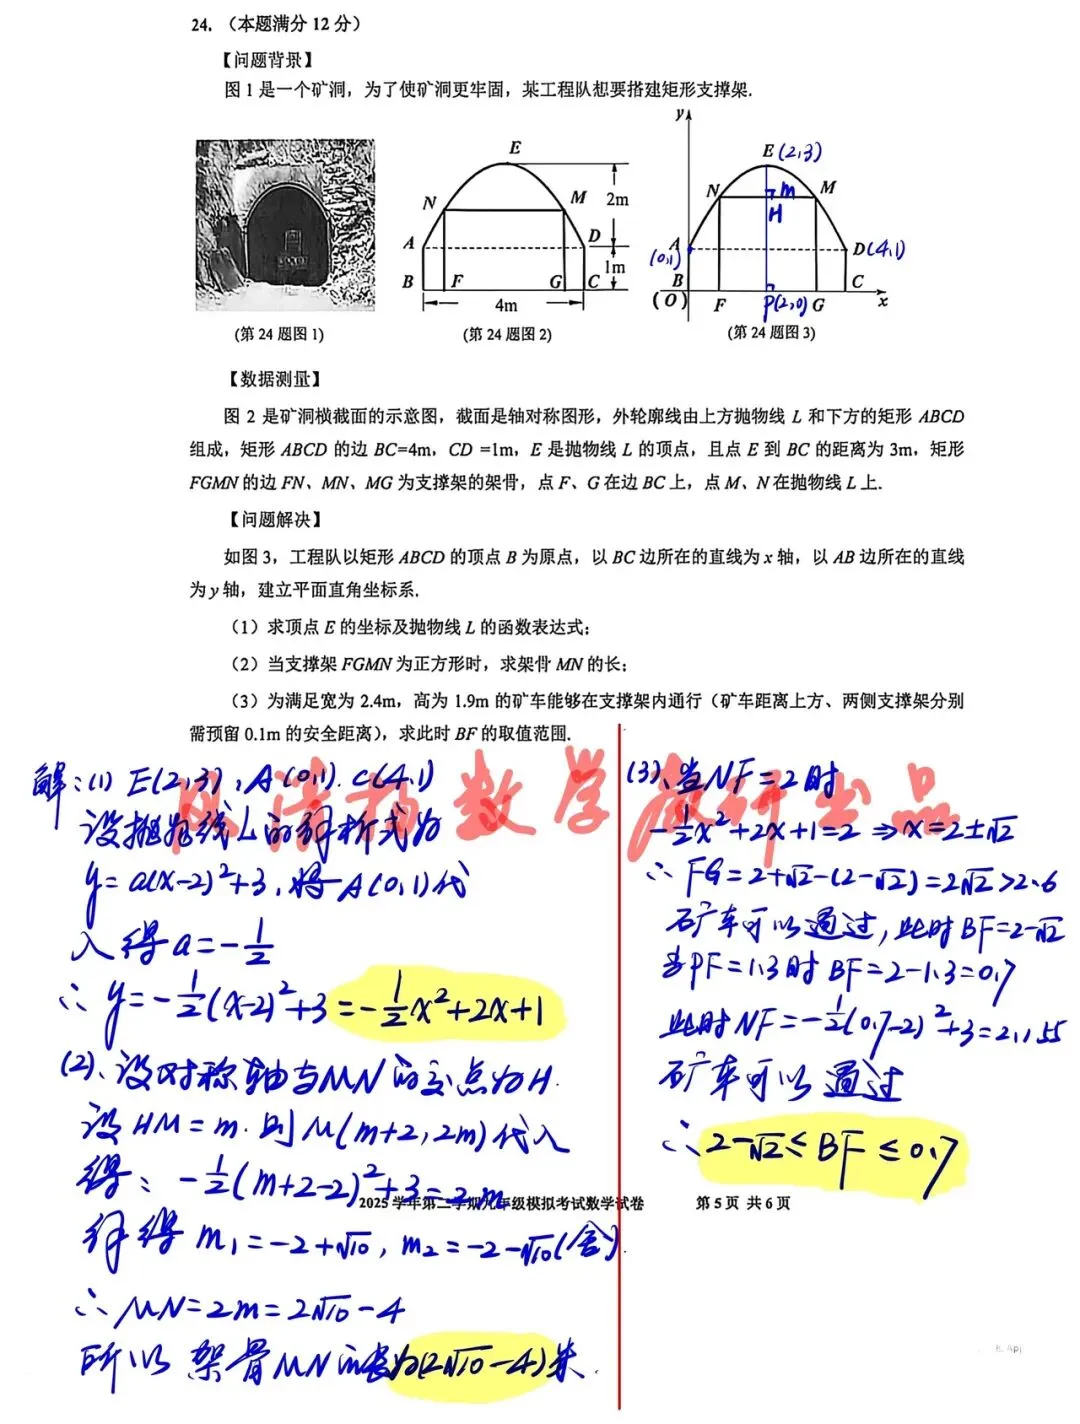 24.（本题满分 12 分）
【问题背景】
图 1 是一个矿洞，为了使矿洞更牢固，某工程队想要搭建矩形支撑架.
E
N
M
2m
A
D
1m
B
F
G
C
4m
y
E (2,3)
N
m
M
H
A
(0,1)
D(4,1)
B
(O)
F
P(2,0)
G
C
x
(第 24 题图 1)
(第 24 题图 2)
(第 24 题图 3)
【数据测量】
图 2 是矿洞横截面的示意图，截面是轴对称图形，外轮廓线由上方抛物线 L 和下方的矩形 ABCD
组成，矩形 ABCD 的边 BC=4m，CD =1m，E 是抛物线 L 的顶点，且点 E 到 BC 的距离为 3m，矩形
FGMN 的边 FN、MN、MG 为支撑架的架骨，点 F、G 在边 BC 上，点 M、N 在抛物线 L 上.
【问题解决】
如图 3，工程队以矩形 ABCD 的顶点 B 为原点，以 BC 边所在的直线为 x 轴，以 AB 边所在的直线
为 y 轴，建立平面直角坐标系.
（1）求顶点 E 的坐标及抛物线 L 的函数表达式；
（2）当支撑架 FGMN 为正方形时，求架骨 MN 的长；
（3）为满足宽为 2.4m，高为 1.9m 的矿车能够在支撑架内通行（矿车距离上方、两侧支撑架分别
需预留 0.1m 的安全距离），求此时 BF 的取值范围.
解：(1) E(2,3), A(0,1). C(4,1)
设抛物线L的解析式为
y=a(x-2)²+3, 将A(0,1)代
入得a=-1/2
∴ y=-1/2(x-2)²+3=-1/2x²+2x+1
(2)、设对称轴与MN的交点为H.
设HM=m. 则M(m+2,2m)代入
得：-1/2(m+2-2)²+3=2m
2025 学年第二学期九年级模拟考试数学试卷 第 5 页 共 6 页
解得 m₁=-2+√10, m₂=-2-√10(舍)
∴ MN=2m=2√10-4
所以架骨MN的长为(2√10-4)米.
(3)、当NF=2时
-1/2x²+2x+1=2 ⇒ x=2±√2
∴ FG=2+√2-(2-√2)=2√2>2.6
矿车可以通过, 此时BF=2-√2
当PF=1.3时 BF=2-1.3=0.7
此时NF=-1/2(0.7-2)²+3=2.155
矿车可以通过
∴ 2-√2≤BF≤0.7
数学教研出品